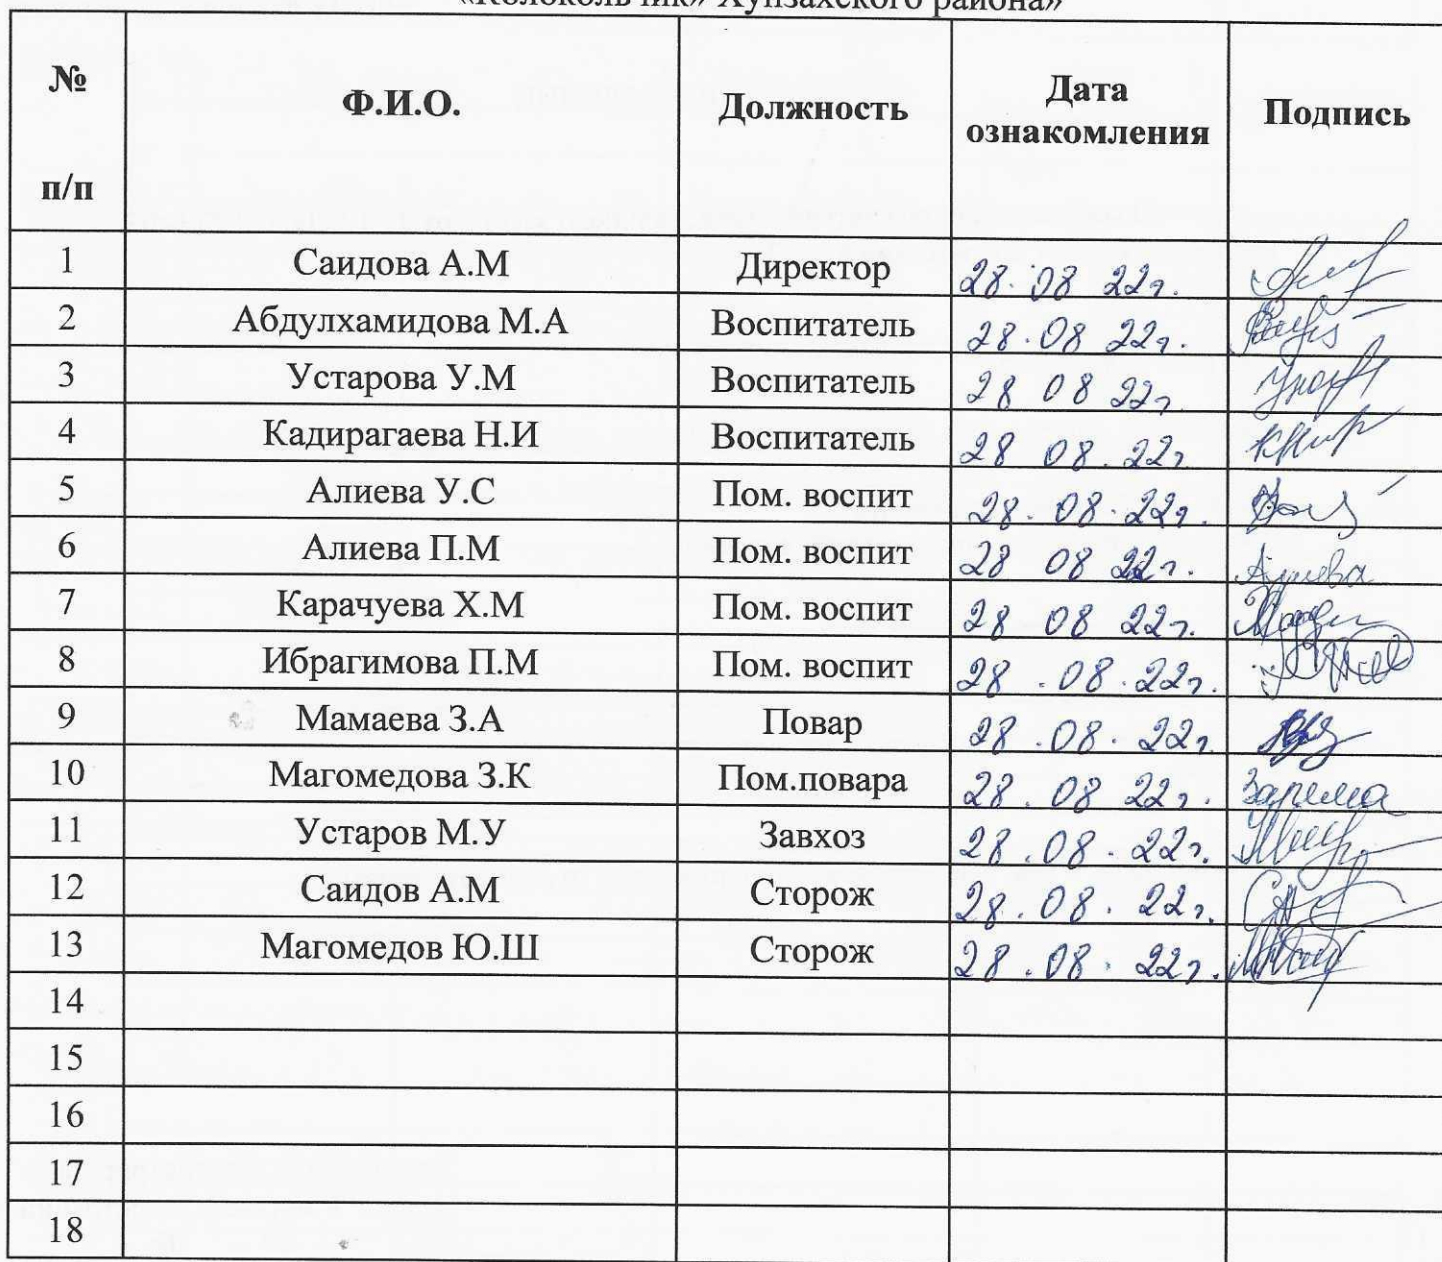 «Колокольчик» Хунзахского района»
№ п/п Ф.И.О. Должность Дата ознакомления Подпись
1 Саидова А.М Директор 28.08 22г.
2 Абдулхамидова М.А Воспитатель 28.08 22г.
3 Устарова У.М Воспитатель 28 08 22г
4 Кадирагаева Н.И Воспитатель 28 08.22г
5 Алиева У.С Пом. воспит 28.08.22г.
6 Алиева П.М Пом. воспит 28 08 22г. Алиева
7 Карачуева Х.М Пом. воспит 28 08 22г.
8 Ибрагимова П.М Пом. воспит 28.08.22г.
9 Мамаева З.А Повар 28.08.22г
10 Магомедова З.К Пом.повара 28.08 22г. Зарема
11 Устаров М.У Завхоз 28.08.22г.
12 Саидов А.М Сторож 28.08.22г.
13 Магомедов Ю.Ш Сторож 28.08.22г.
14
15
16
17
18